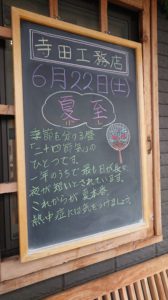 寺田工務店
6月22日(土)
夏至
季節を分ける暦
「二十四節気」の
ひとつです。
一年のうちで最も日が長く
夜が短いとされています。
これからが夏本番。
熱中症には気をつけましょう。